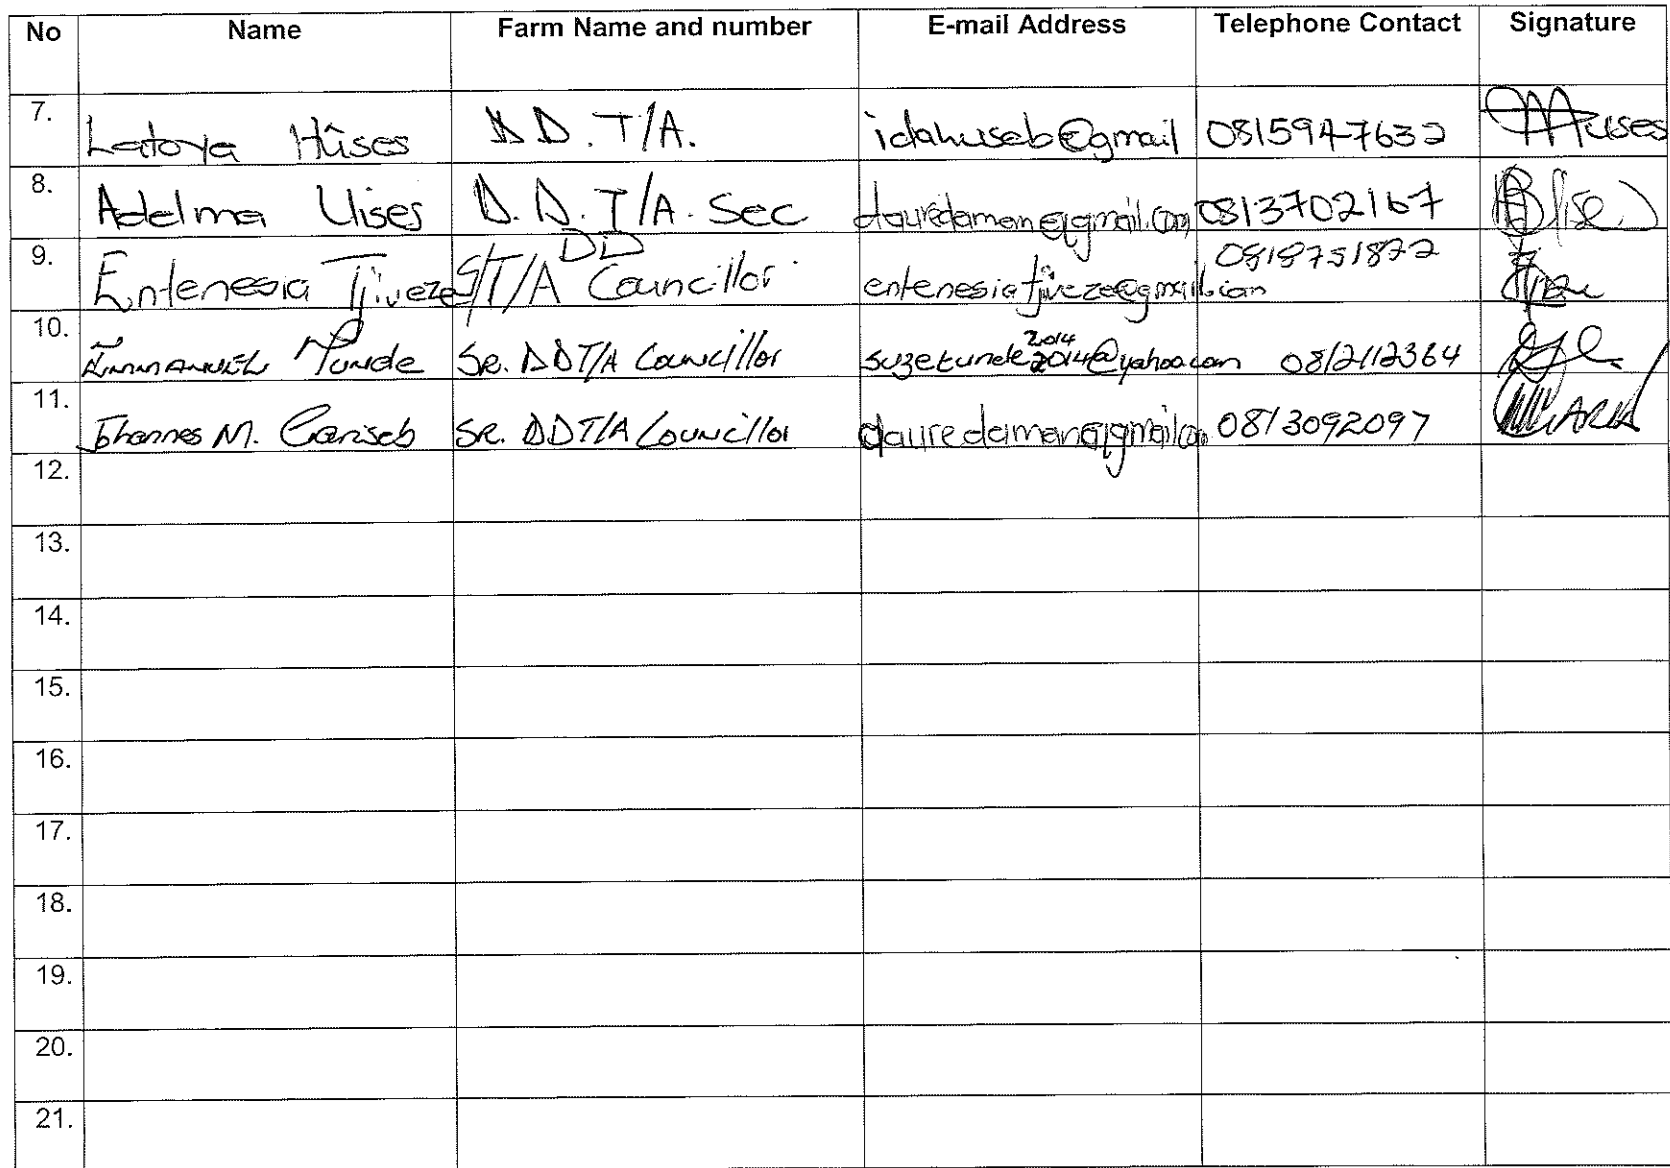 No Name Farm Name and number E-mail Address Telephone Contact Signature
7. Latoya Hûses D.D. T/A. idahuseb@gmail 0815947632
8. Adelma Uises D.D. T/A. Sec dauredaman@gmail.com 0813702167
9. Entenesia Tjiveze S/T/A DD Councillor entenesiatjiveze@gmail.com 0818751822
10. Emmanuel Tunde Sr. DDT/A Councillor suzetunde2014@yahoo.com 0812112364
11. Johannes M. Ganiseb Sr. DDT/A Councillor dauredaman@gmail.co 0813092097
12.
13.
14.
15.
16.
17.
18.
19.
20.
21.